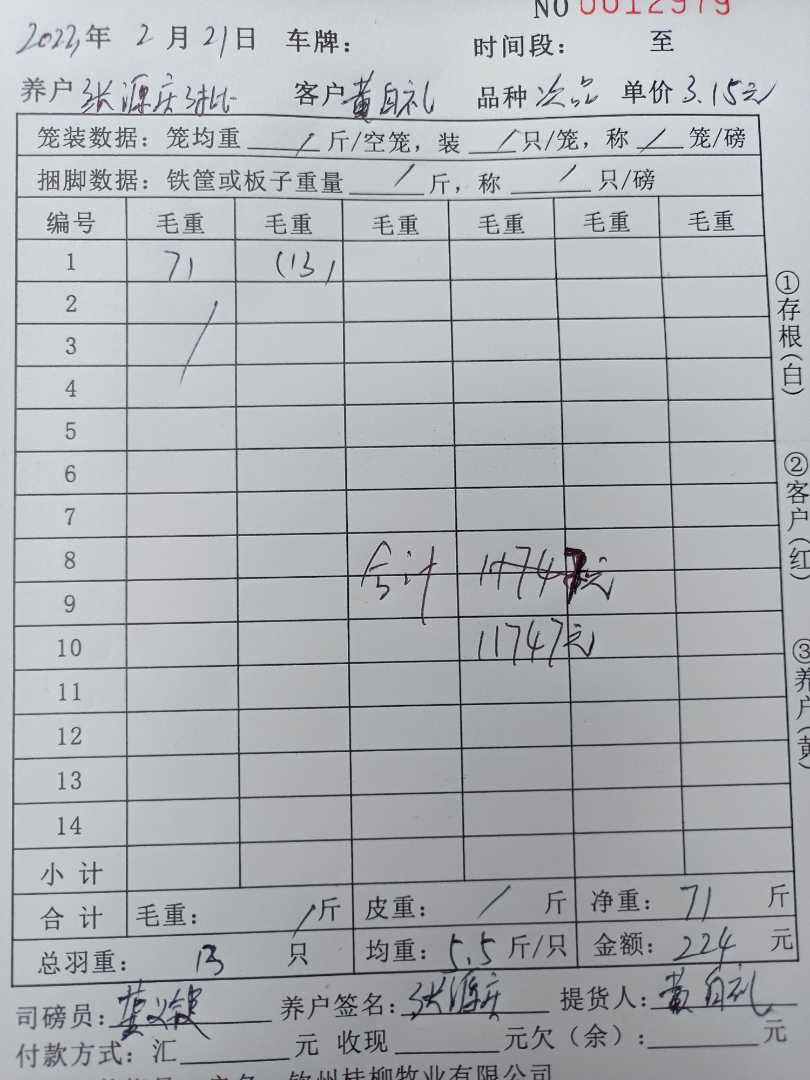 NO 0012979
2023年 2 月 21日 车牌: 时间段: 至
养户 张源庆对比 客户 黄自礼 品种 次品 单价 3.15元
笼装数据: 笼均重 / 斤/空笼, 装 / 只/笼, 称 / 笼/磅
捆脚数据: 铁筐或板子重量 / 斤, 称 / 只/磅
编号 毛重 毛重 毛重 毛重 毛重 毛重
1 71 (13)
2
3
4
5
6
7
8 合计 11747元
9
10 11747元
11
12
13
14
小计
合计 毛重: / 斤 皮重: / 斤 净重: 71 斤
总羽重: 13 只 均重: 5.5 斤/只 金额: 224 元
司磅员: 养户签名: 张源庆 提货人: 黄自礼
付款方式: 汇 元 收现 元欠(余): 元
钦州桂柳牧业有限公司
①存根(白)
②客户(红)
③养户(黄)